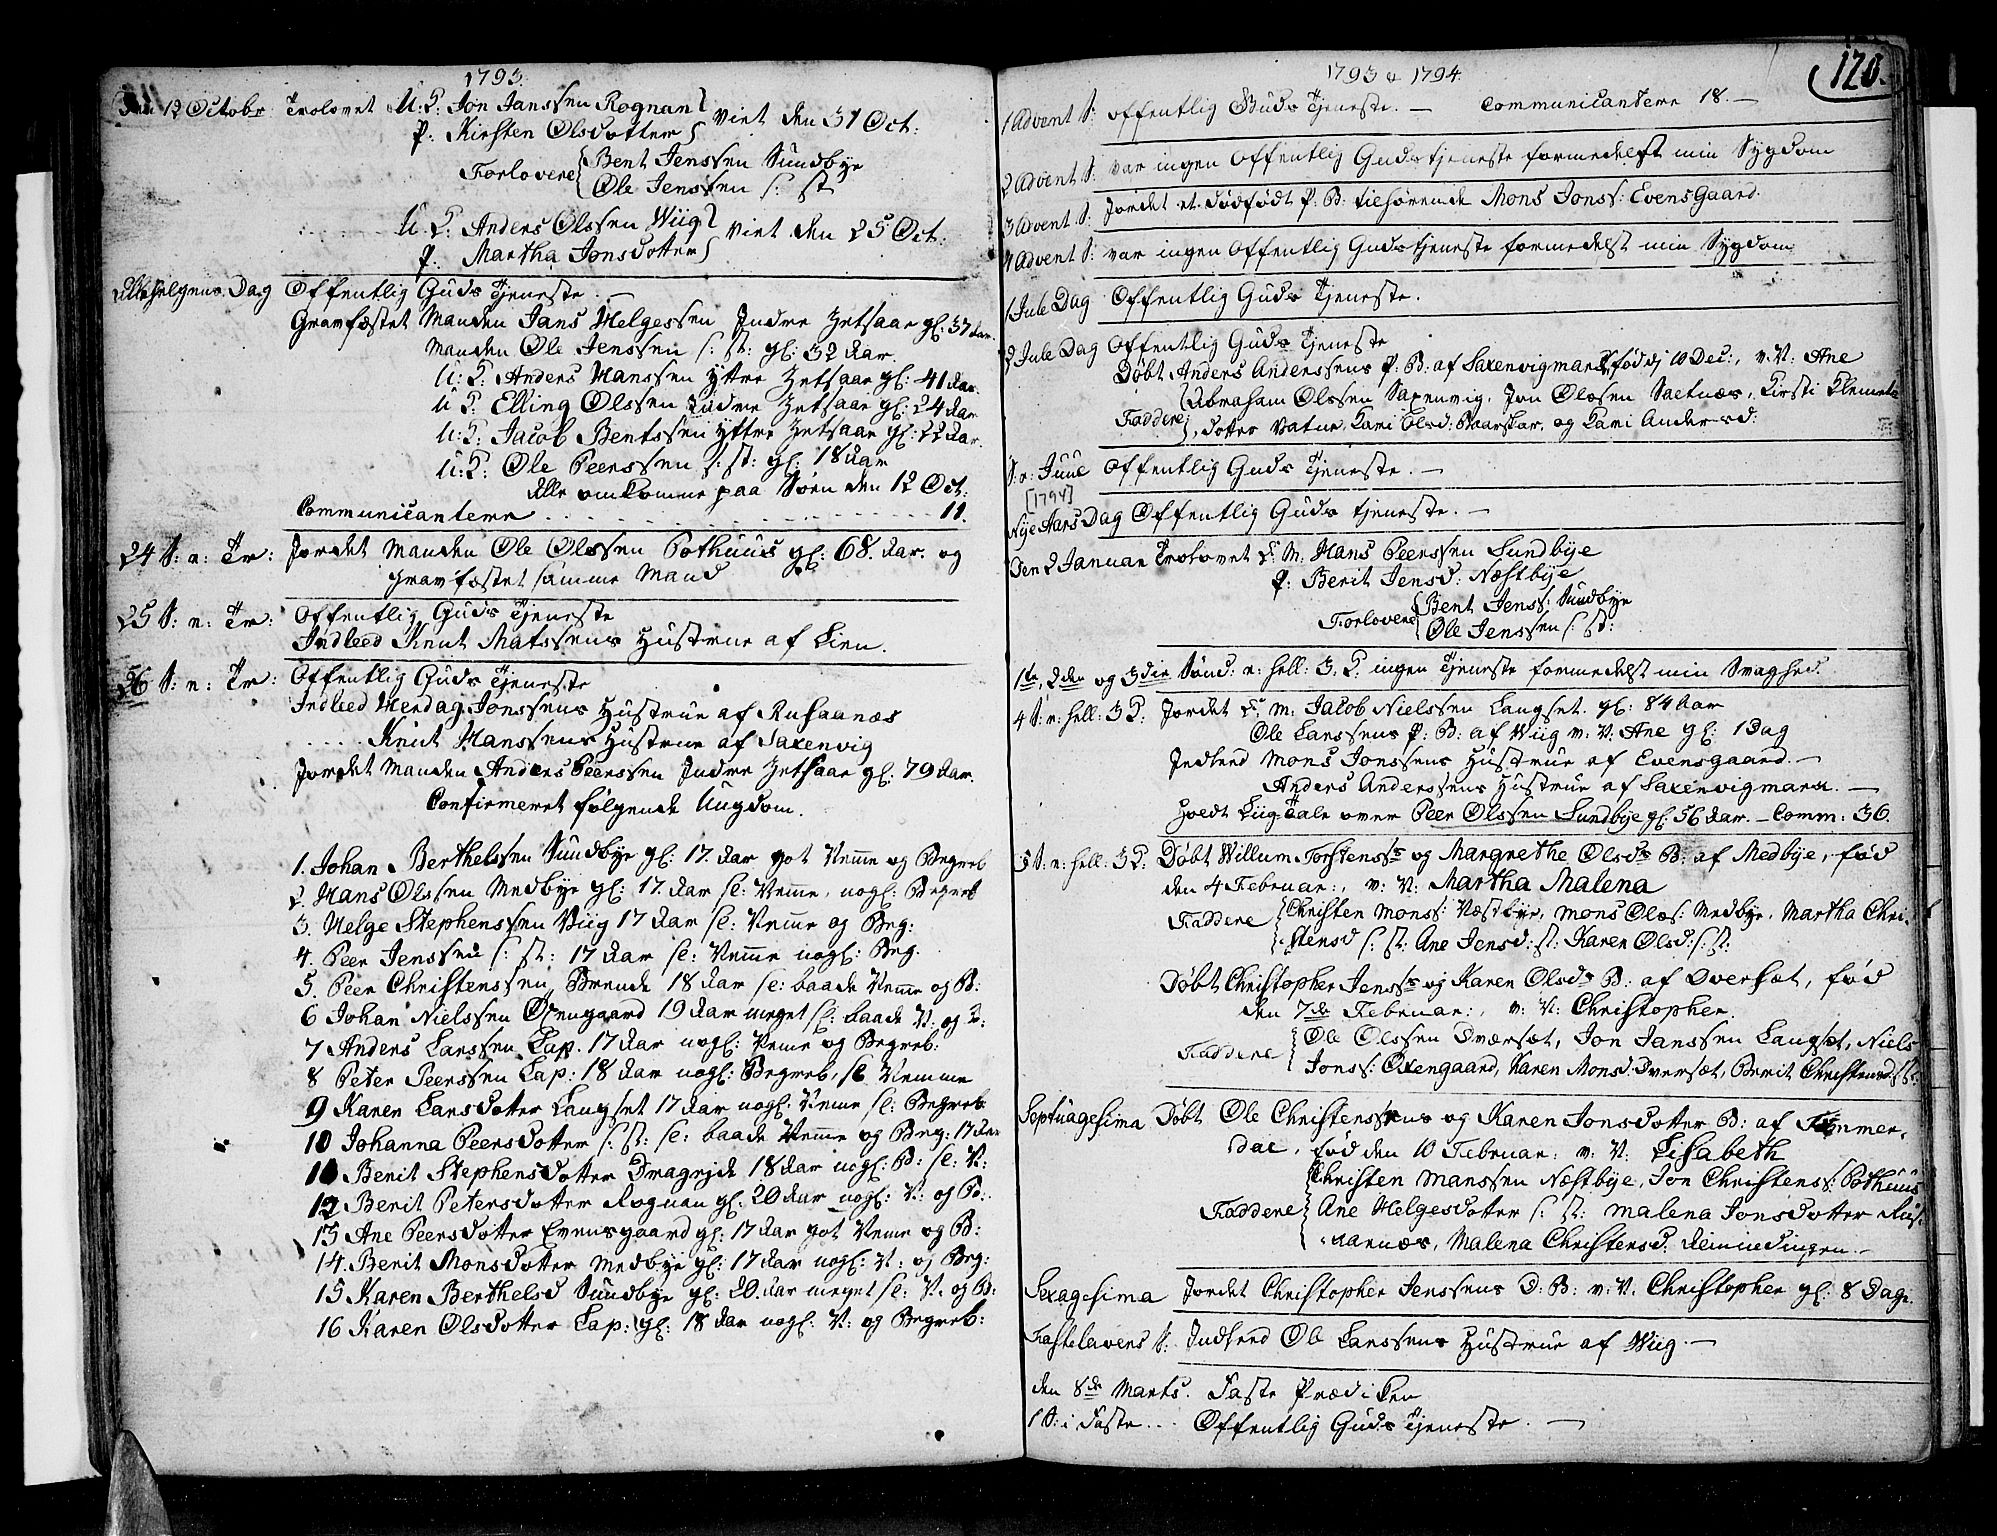 1793.
Den 12 Octobr Trolovet U. K. Jon Janssen Rognan
P. Kirsten Olsdotter
viet den 31 Oct:
Forlovere Bent Jenssen Sundbye
Ole Jenssen s: st
U. K. Anders Olssen Wiig
P. Martha Jonsdotter
viet den 25 Oct.
Allehelgens Dag Offentlig Guds Tjeneste. —
Gravfæstet Manden Jans Helgessen Indre Zetsaae gl: 37 Aar.
Manden Ole Jenssen s: st: gl: 32 Aar.
U: K: Anders Hanssen Yttre Zetsaae gl: 41 Aar.
U: K: Elling Olssen Indre Zetsaae gl: 24 Aar
U: K: Jacob Bentssen Yttre Zetsaae gl: 22 Aar.
U: K: Ole Peerssen s: st: gl: 18 Aar
Alle omkomne paa Søen den 12 Oct:
Communicantere . . . . . . . . . 11.
24 S: n: Tr: Jordet Manden Ole Olssen Pothuus gl: 68. Aar. og
gravfæstet samme Mand
25 S: n: Tr: Offentlig Guds Tjeneste
Indleed Knut Matssens Hustrue af Lien.
26 S: n: Tr: Offentlig Guds Tjeneste
Indleed Herdag Jonssens Hustrue af Rusaanæs
. . . . . Knut Hanssens Hustrue af Saxenvig
Jordet Manden Anders Peerssen Indre Zetsaae gl: 79 Aar.
Confirmeret følgende Ungdom.
1. Johan Berthelssen Sundbye gl: 17. Aar got Nemme og Begreb
2. Hans Olssen Medbye gl: 17. Aar sl: Nemme, nogl: Begreb
3. Helge Stephenssen Viig 17 Aar sl: Nemme og Beg:
4. Peer Jenssen s: st: 17 Aar sl: Nemme nogl: Beg.
5. Peer Christenssen Brende 18 Aar sl: baade Nemme og B:
6 Johan Nielssen Oxengaard 19 Aar meget sl: baade N: og B:
7 Anders Larssen Lap. 17 Aar nogl: Neme og Begreb:
8 Peter Peerssen Lap: 18 Aar nogl: Begreb, sl Nemme
9 Karen Larsdotter Langset 17 Aar nogl. Neme sl: Begreb
10 Johanna Peersdotter s: st: sl: baade Nemme og Beg: 17 Aar
11 Berit Stephensdotter Dragejde 18 Aar nogl: B: sl: N:
12 Berit Petersdotter Rognan gl: 20 Aar nogl: N: og B:
13 Ane Peersdotter Evensgaard gl: 17 Aar got Neme og B:
14. Berit Monsdotter Medbye gl: 17 Aar nogl: N: og Beg:
15 Karen Berthelsd Sundbye gl: 20. Aar meget sl: N. og B:
16 Karen Olsdotter Lap: gl: 18 Aar nogl. N: og Begreb:
1793 & 1794.
120.
1 Advent S: Offentlig Guds Tjeneste. — Communicantere 18. —
2 Advent S: var ingen Offentlig Gudstjeneste formedelst min Sygdom
3 Advent S: Jordet et dødfødt P. B: tilhørende Mons Jonss: Evensgaard.
4 Advent S: var ingen Offentlig Gudstjeneste formedelst min Sygdom.
1 Jule Dag Offentlig Guds Tjeneste.
2 Jule Dag Offentlig Guds Tjeneste
Døbt Anders Anderssens P. B: af Saxenvigmark, fød 10 Dec:, v. N: Ane
Faddere Abraham Olssen Saxenvig, Jon Olssen Saetnæs, Kirsti Klemets
dotter Vatne, Kari Olsd: Baarskar, og Kari Andersd:
S. n: Juul Offentlig Guds Tjeneste. —
[1794]
Nye Aars Dag Offentlig Guds tjeneste. —
Den 2 Januar Trolovet E. M. Hans Peerssen Sundbye
P. Berit Jensd: Næstbye
Forlovere Bent Jenss: Sundbye
Ole Jenssen s: st:
1te, 2den og 3die Sønd. n: hell: 3. K. ingen Tjeneste formedelst min Svaghed.
4 S: n: hell: 3 K: Jordet E. M. Jacob Nielssen Langset. gl: 84 Aar
Ole Larssens P. B: af Wiig v: N. Ane gl: 1 Dag
Indleed Mons Jonssens Hustrue af Evensgaard. —
Anders Anderssens Hustrue af Saxenvigmark. —
Holdt Liig Tale over Peer Olssen Sundbye gl: 56 Aar. — Comm: 36.
5 S: n: hell: 3 K: Døbt Willum Torstenss og Margrethe Olsds B: af Medbye, fød
den 4 Februar:, v: N: Martha Malena
Faddere Christen Monss: Næstbye, Mons Olss: Medbye, Martha Chri-
stensd s: st: Ane Jensd: st: Karen Olsd: s: st:
Døbt Christopher Jenss og Karen Olsds B: af Oversæt, fød
den 7de Februar:, v: N: Christopher.
Faddere Ole Olssen Dversæt, Jon Janssen Langset, Niels
Jonss: Oxengaard, Karen Monsd. Dversæt, Berit Christensd. st:
Septuagesima Døbt Ole Christenssens og Karen Jonsdotter B: af Tømmer-
dal, fød den 10 Februar: v: N. Lisabeth
Faddere Christen Manssen Næstbye, Jon Christenss: Pothuus
Ane Helgesdotter s: st: Malena Jonsdotter Rus-
aanæs, Malena Christensd.
Sexagesima Jordet Christopher Jenssens D: B: v: N. Christopher gl: 8 Dage.
Fastelavens S: Indleed Ole Larssens Hustrue af Wiig. —
den 8de Marts. Faste Prædiken
1 S: i Faste . . . Offentlig Guds Tjeneste. —